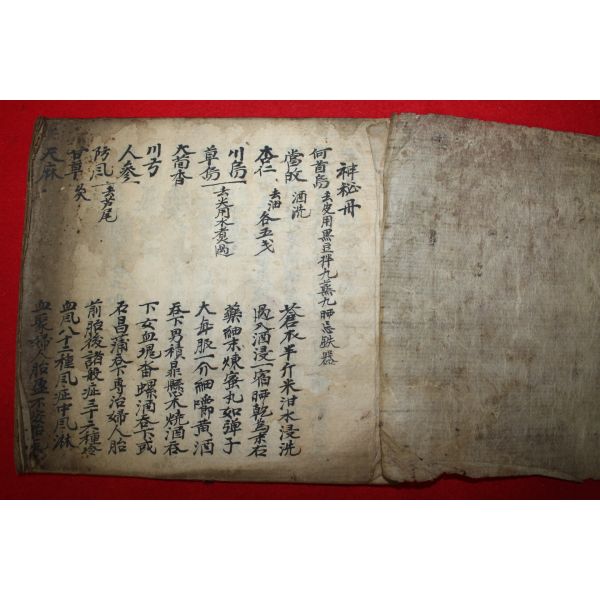 神秘丹
何首烏 去皮用黑豆拌九蒸九晒忌鉄器
當故 酒洗
杏仁 去油各五戋
川烏
草烏 去尖用水煮過
大茴香
川芎
人參
防風 去芦尾
甘草 炙
天麻
蒼朮半斤米泔水浸洗
過又酒浸一宿晒乾為末右
藥細末煉蜜丸如彈子
大每服一介細嚼黃酒
吞下男積 酒吞
下女血塊 酒吞下或
石昌蒲吞下專治婦人胎
前胎後諸般症三十三種冷
血風八十三種風症中風淋
血聚婦人胎